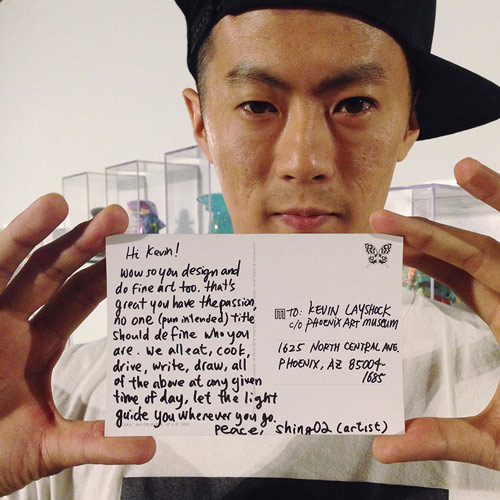 Hi Kevin!
Wow so you design and
do fine art too. that's
great you have the passion,
no one (pun intended) title
should define who you
are. We all eat, cook,
drive, write, draw, all
of the above at any given
time of day, let the light
guide you wherever you go.
peace, shing02 (artist)
TO: KEVIN LAYSHOCK
c/o PHOENIX ART MUSEUM
1625 NORTH CENTRAL AVE.
PHOENIX, AZ 85004-
1685